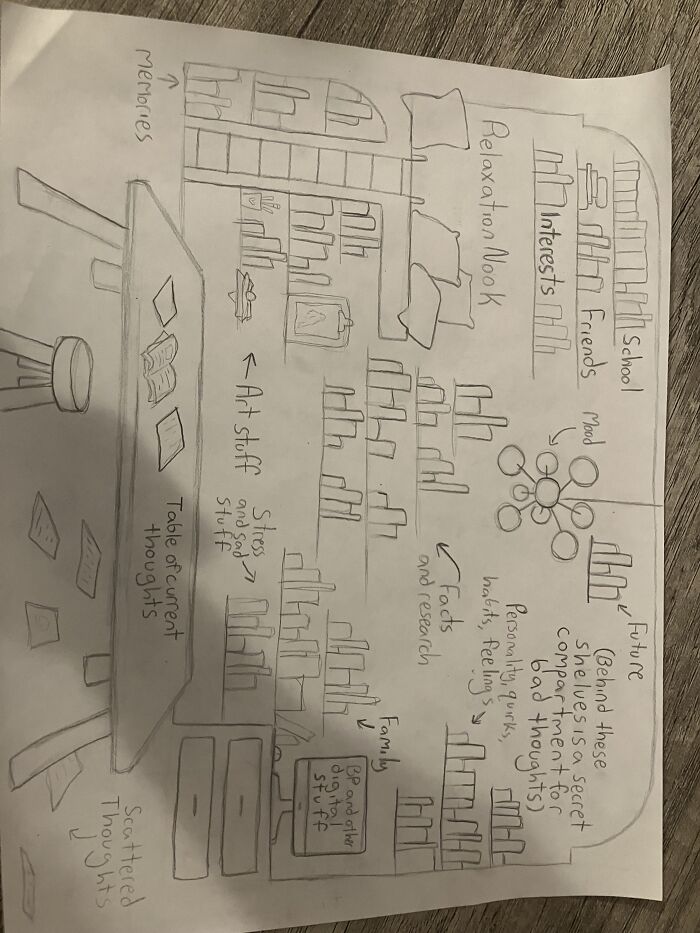 School
Friends
Interests
Relaxation Nook
↑
Memories
Mood
Future
(Behind these
shelves is a secret
compartment for
bad thoughts)
Personality, quirks,
habits, feelings
Facts
and research
← Art stuff
Stress
and sad
stuff
Family
BP and other
digital
stuff
Table of current
thoughts
Scattered
Thoughts